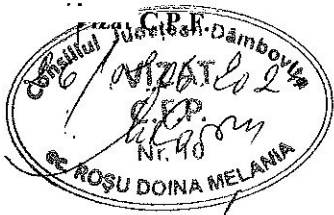 Viza C.P.F.
Consiliul Județean Dâmbovița
VIZAT
C.F.P.
Nr. 10
ec. ROȘU DOINA MELANIA